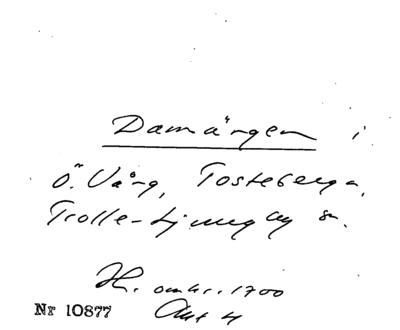 Damängen i
Ö. Vång, Tosteberga,
Trolle-Ljungby sn.
H. omkr. 1700
Akt 4
Nr 10877